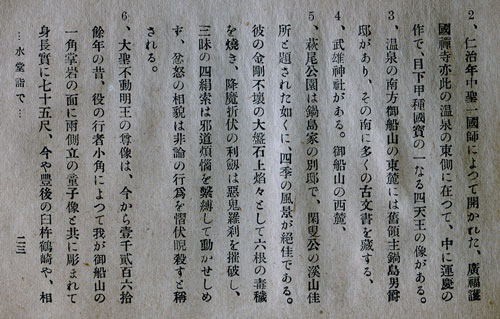 2、仁治年中聖一國師によつて開かれた、廣福護
國禪寺亦此の溫泉の東側に在つて、中に運慶の
作で、目下甲種國寶の一なる四天王の像がある。
3、溫泉の南方御船山の東麓には舊領主鍋島男爵
邸があり、その南に多くの古文書を藏する、
4、武雄神社がある。御船山の西麓、
5、萩尾公園は鍋島家の別邸で、閑叟公の溪山佳
所と題された如くに、四季の風景が絕佳である。
彼の金剛不壞の大盤石上焰々として六根の毒穢
を燒き、降魔折伏の利劔は惡鬼羅刹を摧破し、
三昧の四絹索は邪道煩惱を繫縛して動かせしめ
す、忿怒の相貌は非論の行爲を慴伏睨殺すと稱
される。
6、大聖不動明王の尊像は、今から壹千貳百六拾
餘年の昔、役の行者小角によつて我が御船山の
一角掌岩の面に兩側立の童子像と共に彫まれて
身長實に七十五尺、今や豐後の臼杵鶴崎や、相
…水堂詣で…
二三